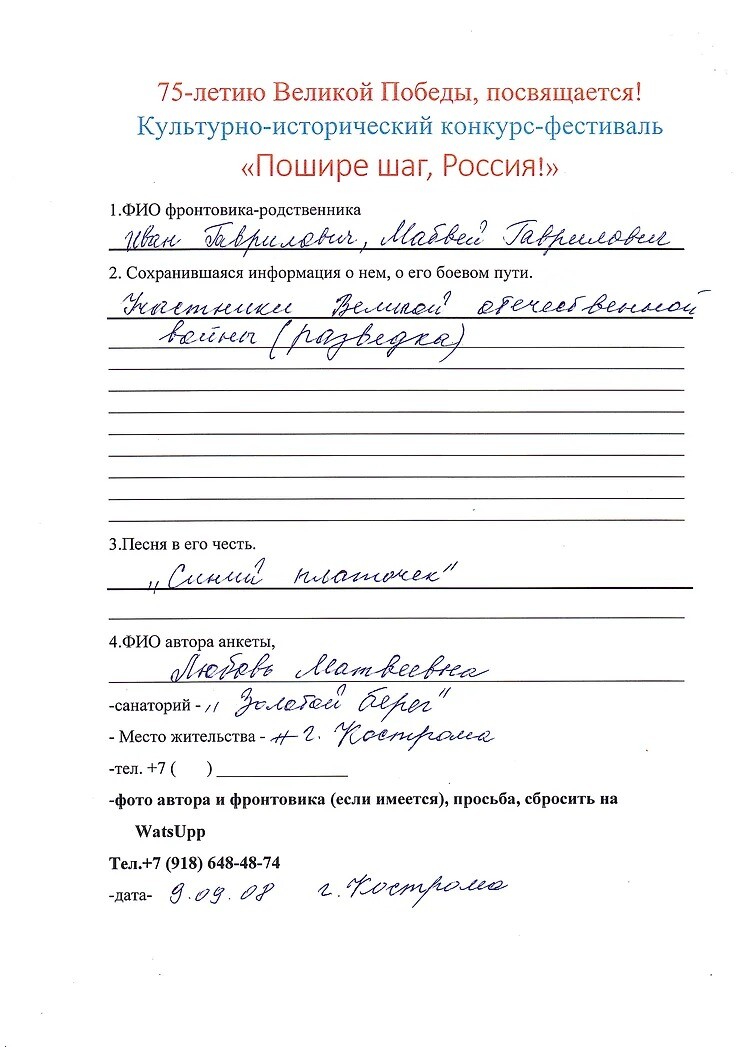 75-летию Великой Победы, посвящается!
Культурно-исторический конкурс-фестиваль
«Пошире шаг, Россия!»
1.ФИО фронтовика-родственника
Иван Гаврилович, Матвей Гаврилович
2. Сохранившаяся информация о нем, о его боевом пути.
Участники Великой отечественной
войны (разведка)
3.Песня в его честь.
„Синий платочек"
4.ФИО автора анкеты,
Любовь Матвеевна
-санаторий - „Золотой берег"
- Место жительства - г. Кострома
-тел. +7 (      ) _______________
-фото автора и фронтовика (если имеется), просьба, сбросить на
WatsUpp
Тел.+7 (918) 648-48-74
-дата- 9.09.08 г. Кострома